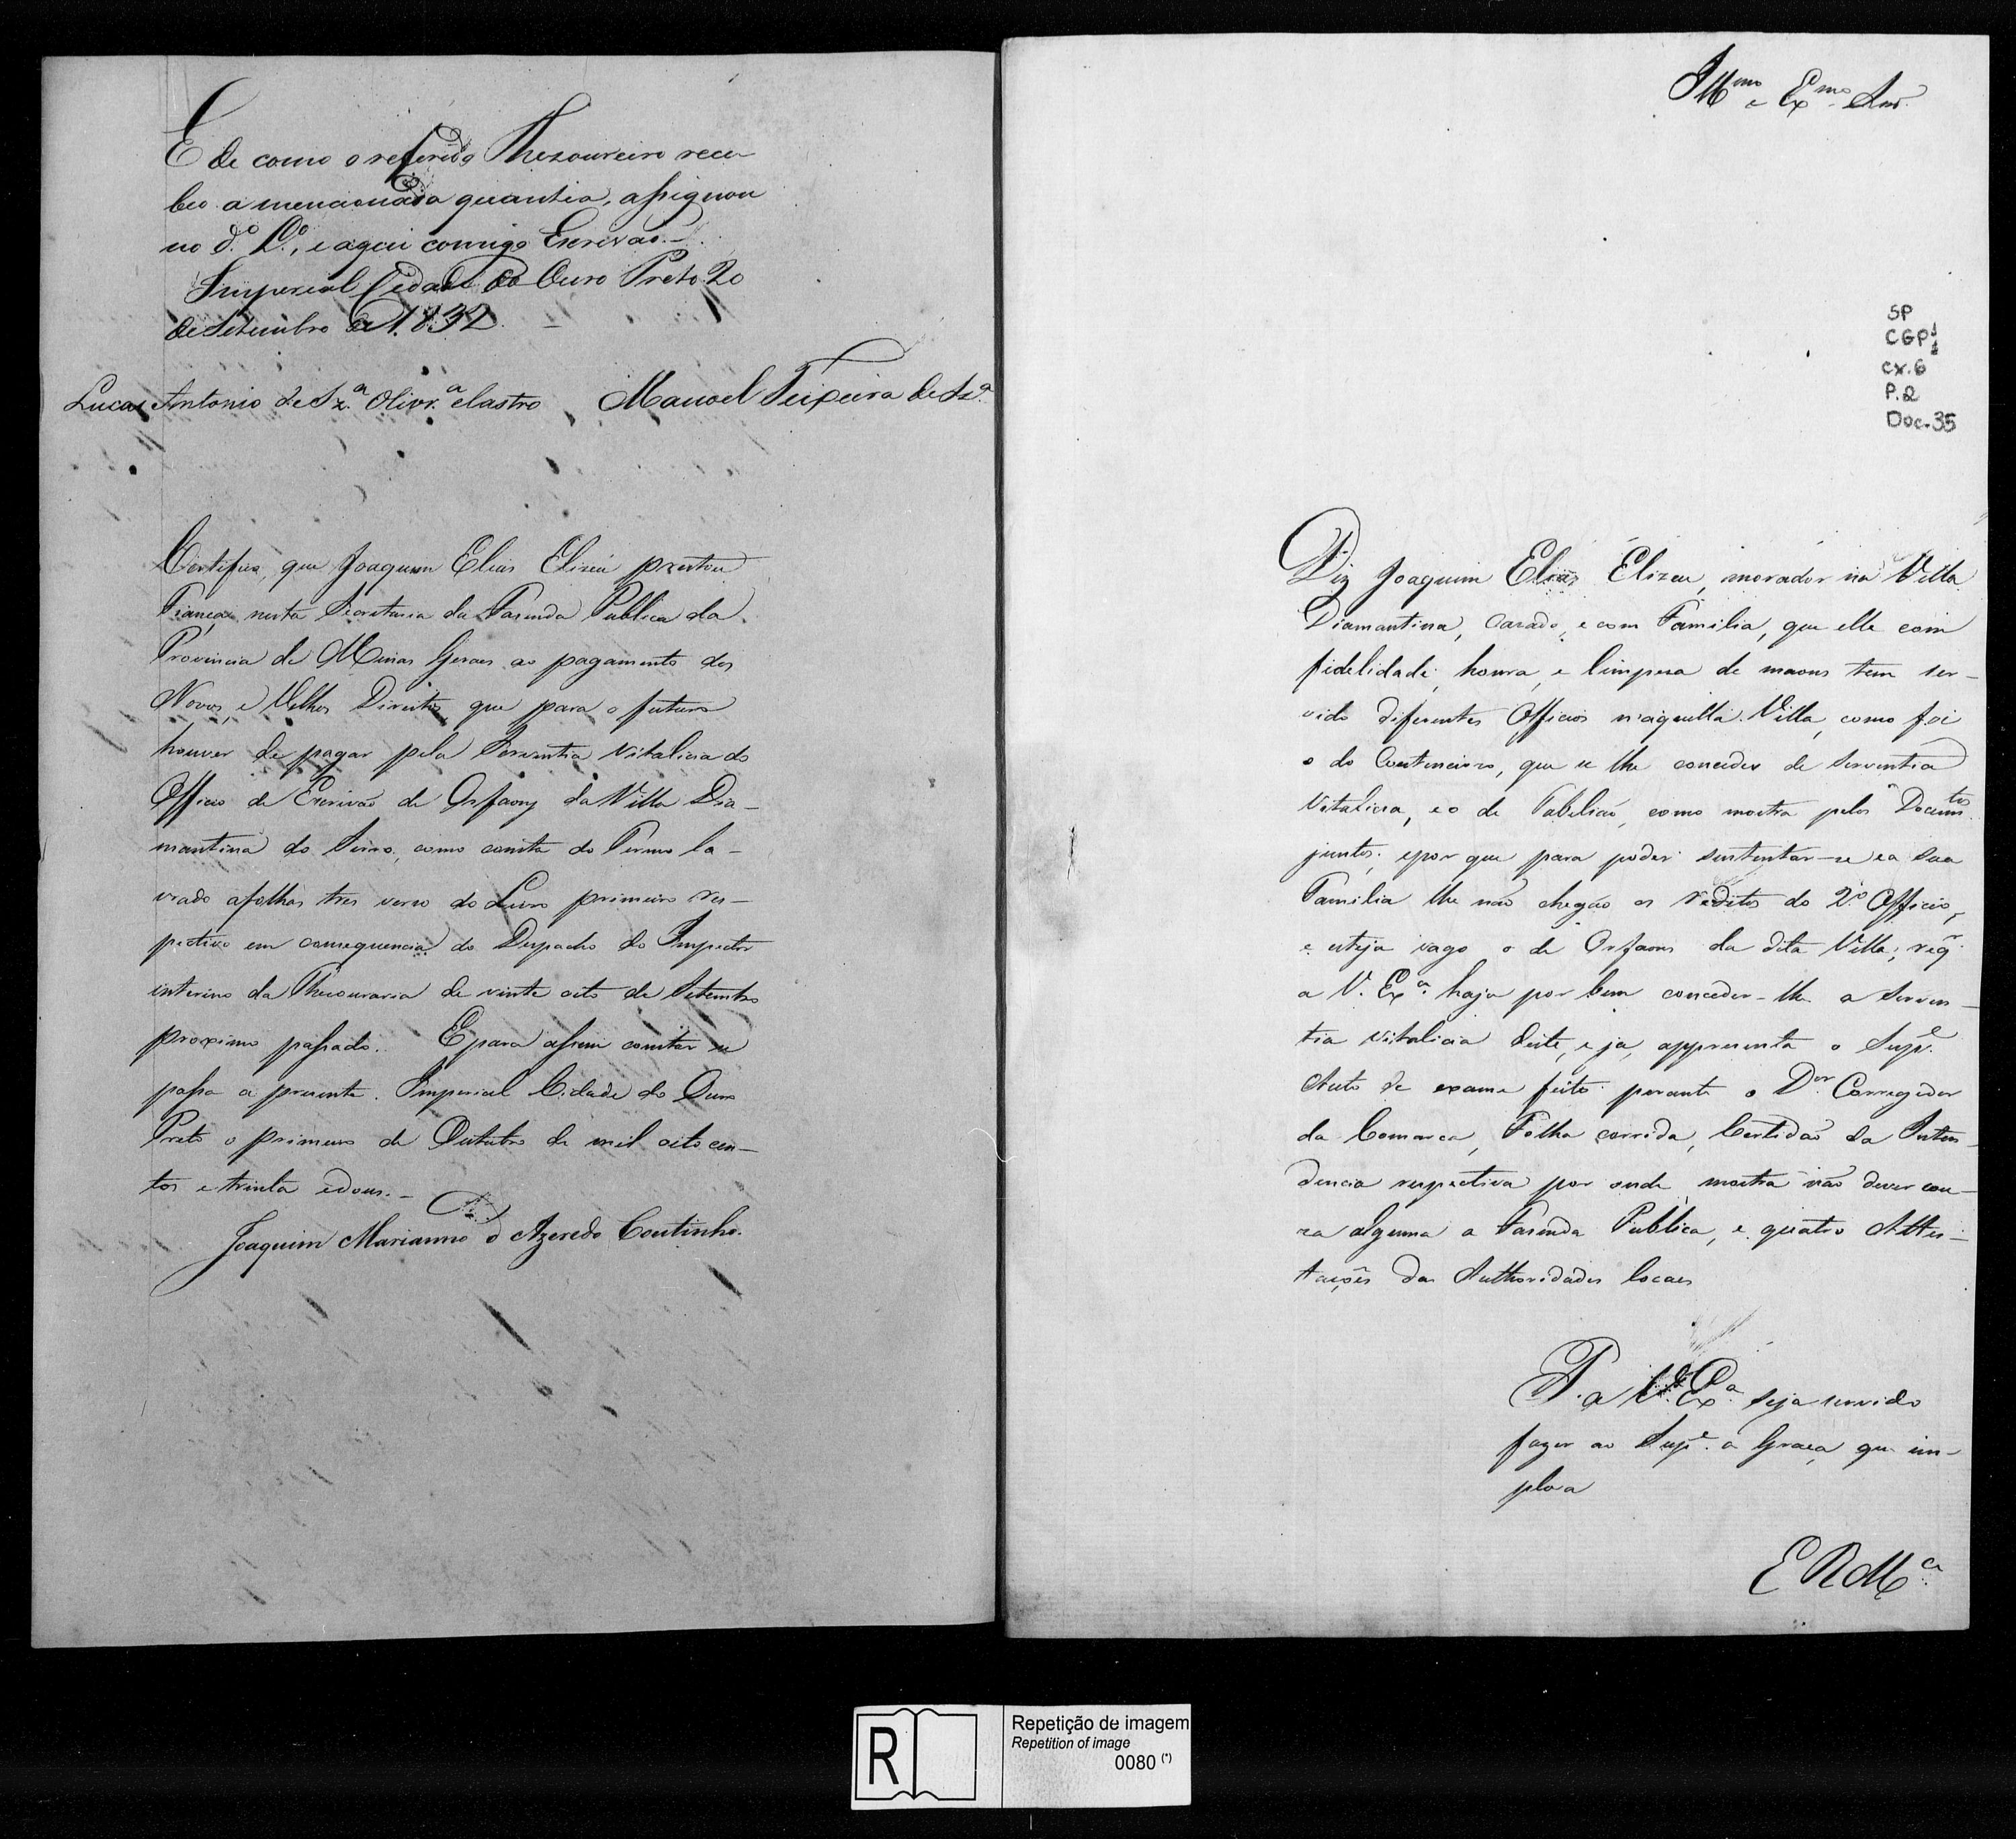 E de como o referido Thezoureiro rece-
beo a mencionada quantia, assignou
no d.º L.º, e aqui comigo Escrivão.-
Imperial Cidade do Ouro Preto 20
de Setembro de 1832 -
Lucas Antonio de Sz.ª Olivr.ª e Castro Manoel Teixeira de Sz.ª
Certifico, que Joaquim Elias Elizeu prestou
Fiança nesta Secretaria da Fasenda Publica da
Provincia de Minas Geraes ao pagamento dos
Novos, e Velhos Direitos, que para o futuro
houver de pagar pela Serventia Vitalicia do
Officio de Escrivão de Orfaons da Villa Dia-
mantina do Serro, como consta do Termo la-
vrado afolhas tres verso do Livro primeiro res-
pectivo em consequencia do Despacho do Inspector
interino da Thesouraria de vinte oito de Setembro
proximo passado. E para assim constar se
passa a presente. Imperial Cidade do Ouro
Preto o primeiro de Outubro de mil oito cen-
tos e trinta e dous.-
Joaquim Marianno d'Azeredo Coutinho.
Illmo e Exmo Snr.
SP
CGP 1/1
cx. 6
P. 2
Doc. 35
Diz Joaquim Elias Elizeu, morador na Villa
Diamantina, casado, e com Familia, que elle com
fidelidade, honra, e limpesa de maons tem ser-
vido diferentes Officios n'aquella Villa, como foi
o do Contencioso, que se lhe concedeu de Serventia
Vitalicia, e o de Tabelião, como mostra pelos Docum.tos
juntos; e por que para poder sustentar-se e a sua
Familia lhe não chegão os reditos do 2.º Officio,
e esteja vago o de Orfaons da dita Villa; req.
a V. Ex.ª haja por bem conceder-lhe a Serven-
tia vitalicia deste, e ja appresenta o Sup.e
Auto de exame feito perante o D.or Corregedor
da Comarca, Folha corrida, Certidão da Inten-
dencia respectiva por onde mostra não dever cou-
za alguma a Fasenda Publica, e quatro Attes-
tações das Authoridades locaes
P. a V. Ex.ª seja servido
fazer ao Sup.e a Graça, que im-
plora
E R M.ce
R
Repetição de imagem
Repetition of image
0080 (*)